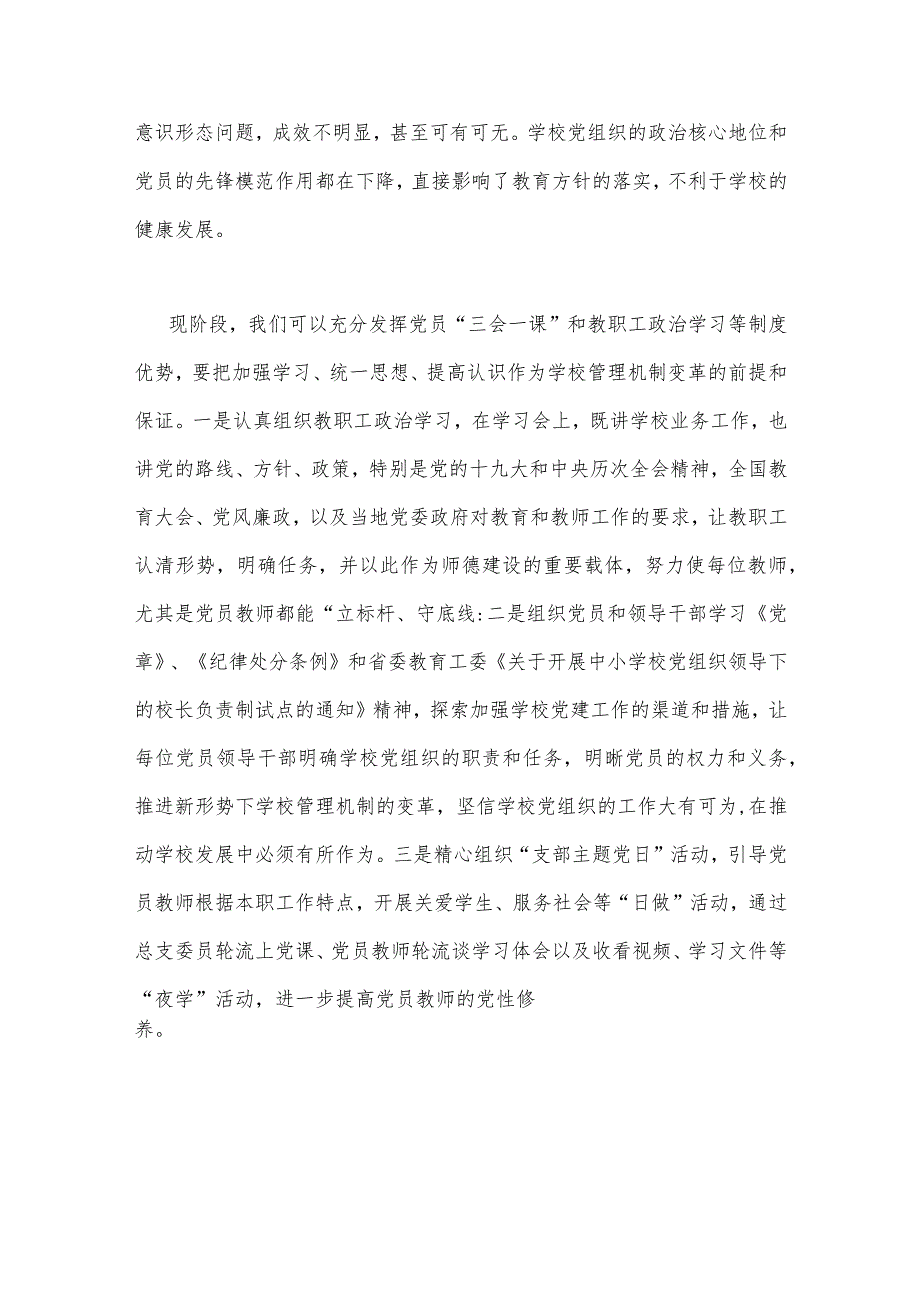 意识形态问题，成效不明显，甚至可有可无。学校党组织的政治核心地位和
党员的先锋模范作用都在下降，直接影响了教育方针的落实，不利于学校的
健康发展。
现阶段，我们可以充分发挥党员“三会一课”和教职工政治学习等制度
优势，要把加强学习、统一思想、提高认识作为学校管理机制变革的前提和
保证。一是认真组织教职工政治学习，在学习会上，既讲学校业务工作，也
讲党的路线、方针、政策，特别是党的十九大和中央历次全会精神，全国教
育大会、党风廉政，以及当地党委政府对教育和教师工作的要求，让教职工
认清形势，明确任务，并以此作为师德建设的重要载体，努力使每位教师，
尤其是党员教师都能“立标杆、守底线:二是组织党员和领导干部学习《党
章》、《纪律处分条例》和省委教育工委《关于开展中小学校党组织领导下
的校长负责制试点的通知》精神，探索加强学校党建工作的渠道和措施，让
每位党员领导干部明确学校党组织的职责和任务，明晰党员的权力和义务，
推进新形势下学校管理机制的变革，坚信学校党组织的工作大有可为,在推
动学校发展中必须有所作为。三是精心组织“支部主题党日”活动，引导党
员教师根据本职工作特点，开展关爱学生、服务社会等“日做”活动，通过
总支委员轮流上党课、党员教师轮流谈学习体会以及收看视频、学习文件等
“夜学”活动，进一步提高党员教师的党性修
养。